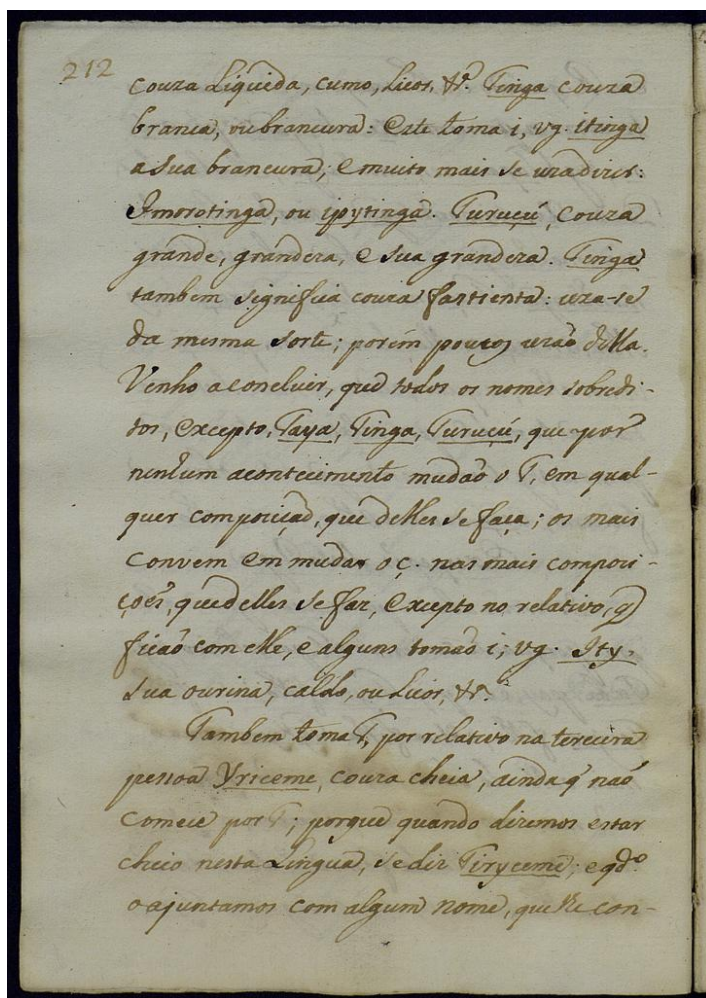 212
couza Liqueda, cumo, Licor, &ª. Tinga couza
branca, ou brancura: Este toma i, vg. itinga
a sua brancura; e muito mais se uza dizer:
Imorotinga, ou ipytinga. Turuçú, couza
grande, grandeza, e sua grandeza. Tinga
tambem significa couza fastienta: uza-se
da mesma sorte; porém poucos uzaõ della.
Venho a concluir, que todos os nomes sobredi-
tos, excepto, Taya, Tinga, Turuçú, que por
nenhum acontecimento mudaõ o T, em qual-
quer composiçaõ, que delles se faça; os mais
convem em mudar o ç. nas mais composi-
çoẽs, que delles se faz, excepto no relativo, q̃
ficaõ com elle, e alguns tomaõ i; vg. Ity.
sua ourina, caldo, ou Licor, &ª.
Tambem toma T, por relativo na terceira
pessoa Yriceme, couza cheia, ainda q̃ naõ
comece por T; porque quando dizemos estar
cheio nesta Lingua, se diz Tiryceme; e qdº.
o ajuntamos com algum nome, que lhe con-